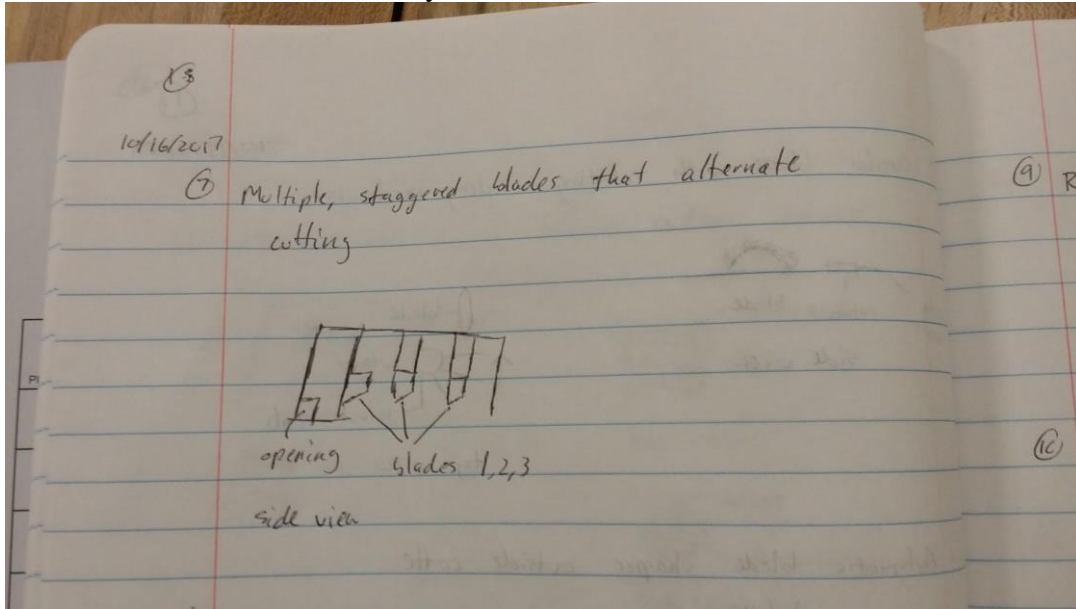 10/16/2017
⑦ Multiple, staggered blades that alternate
cutting
opening blades 1,2,3
side view
⑨ R
⑩